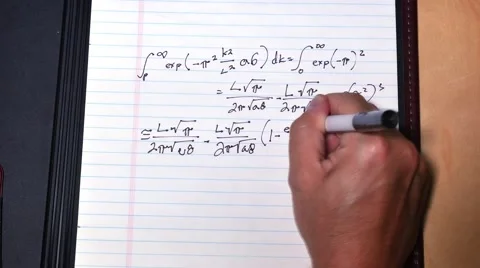 ∫ₚ^∞ exp(-π² k²/L² aθ) dk = ∫₀^∞ exp(-π)²
= L√π / 2π√aθ - L√π / 2π
≅ L√π / 2π√aθ - L√π / 2π√aθ (1-